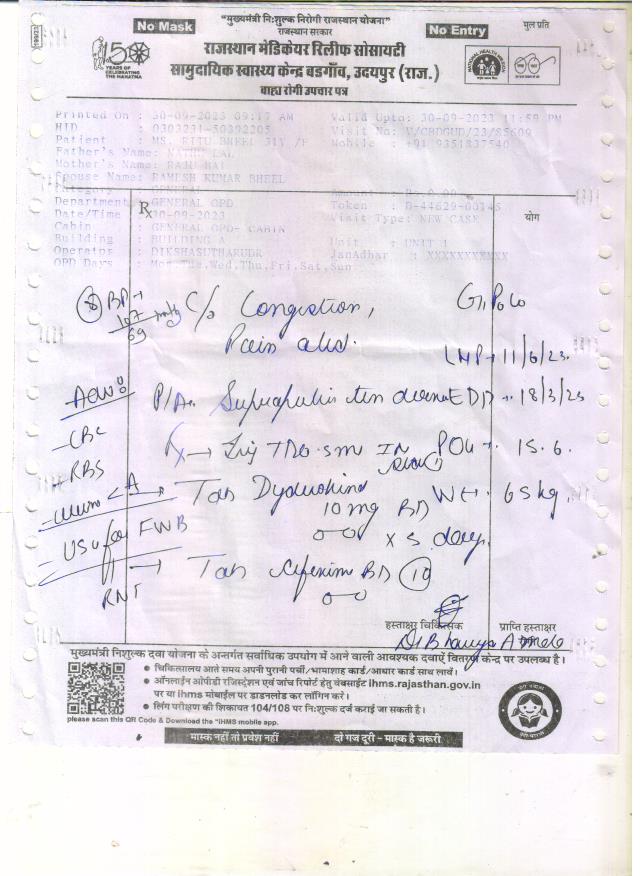 199/23
No Mask
"मुख्यमंत्री नि:शुल्क निरोगी राजस्थान योजना"
राजस्थान सरकार
No Entry
मुल प्रति
150
YEARS OF
CELEBRATING
THE MAHATMA
राजस्थान मेडिकेयर रिलीफ सोसायटी
सामुदायिक स्वास्थ्य केन्द्र बडगाँव, उदयपुर (राज.)
बाह्य रोगी उपचार पत्र
Printed On : 30-09-2023 09:17 AM Valid Upto: 30-09-2023 11:59 PM
HID : 0303231-50392205 Visit No: V/CBDGUD/23/85609
Patient : MS. RITU BHEEL 31Y /F Mobile : +91 9351837540
Father's Name:
Mother's Name:
Spouse Name: RAMESH KUMAR BHEEL
Category : GENERAL Amount : Rs.0.00
Department : GENERAL OPD Token : D-44629-00145
Date/Time : 30-09-2023 Visit Type: NEW CASE
Rx
योग
Cabin : GENERAL OPD- CABIN
Building : BUILDING A Unit : UNIT 1
Operator : DIKSHASUTHARUDR JanAdhar : XXXXXXXXXXX
OPD Days : Mon,Tue,Wed,Thu,Fri,Sat,Sun
BP → 107/69 C/o Congestion, G1P0L0
Pain abd. LMP → 11/6/23
Adv:
P/A Suprapubic tenderness EDD → 18/3/23
- CBC
Rx → Inj IM POG → 15.6
- RBS
→ Tab 10 mg BD Wt. 65 kg
x 5 days
USG for FWB
RNT
→ Tab Cefixim BD 10
हस्ताक्षर चिकित्सक
प्राप्ति हस्ताक्षर
मुख्यमंत्री निशुल्क दवा योजना के अन्तर्गत सर्वाधिक उपयोग में आने वाली आवश्यक दवाऐं वितरण केन्द्र पर उपलब्ध है।
● चिकित्सालय आते समय अपनी पुरानी पर्ची/भामाशाह कार्ड/आधार कार्ड साथ लावें।
● ऑनलाईन ओपीडी रजिस्ट्रेशन एवं जांच रिपोर्ट हेतु वेबसाईट ihms.rajasthan.gov.in
पर या ihms मोबाईल पर डाउनलोड कर लॉगिन करें।
● लिंग परीक्षण की शिकायत 104/108 पर नि:शुल्क दर्ज कराई जा सकती है।
please scan this QR Code & Download the "IHMS mobile app.
मास्क नहीं तो प्रवेश नहीं दो गज दूरी - मास्क है जरूरी